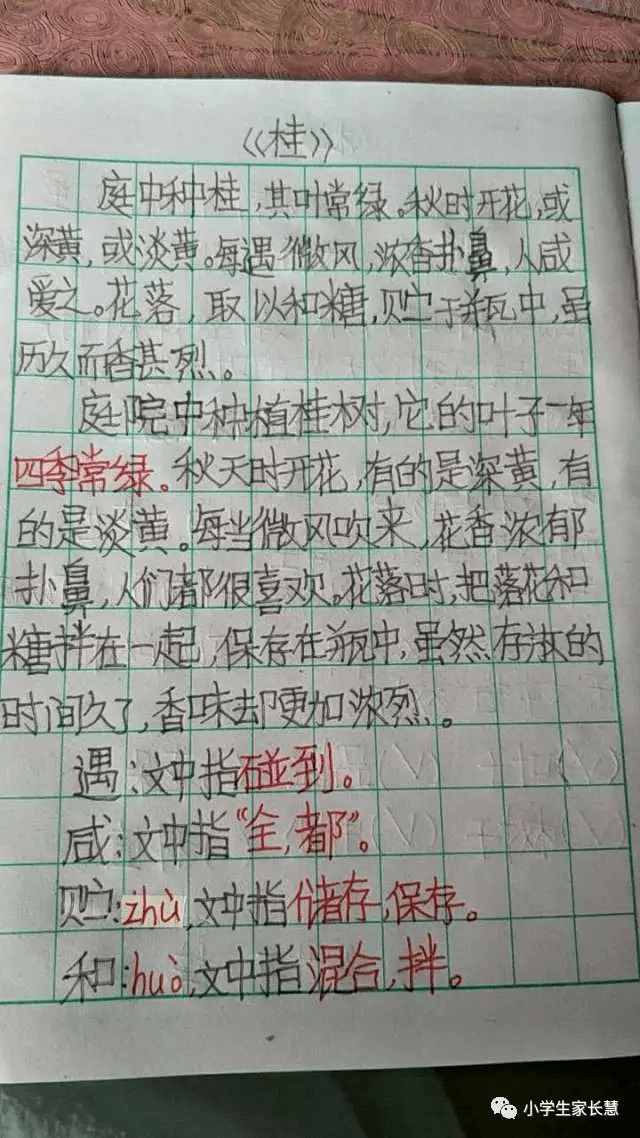 《桂》
庭中种桂,其叶常绿。秋时开花,或
深黄,或淡黄。每遇微风,浓香扑鼻,人咸
爱之。花落,取以和糖,贮于瓶中,虽
历久而香甚烈。
庭院中种植桂树,它的叶子一年
四季常绿。秋天时开花,有的是深黄,有
的是淡黄。每当微风吹来,花香浓郁
扑鼻,人们都很喜欢。花落时,把落花和
糖拌在一起,保存在瓶中,虽然存放的
时间久了,香味却更加浓烈。
遇:文中指碰到。
咸:文中指“全,都”。
贮:zhù,文中指储存,保存。
和:huò,文中指混合,拌。
小学生家长慧